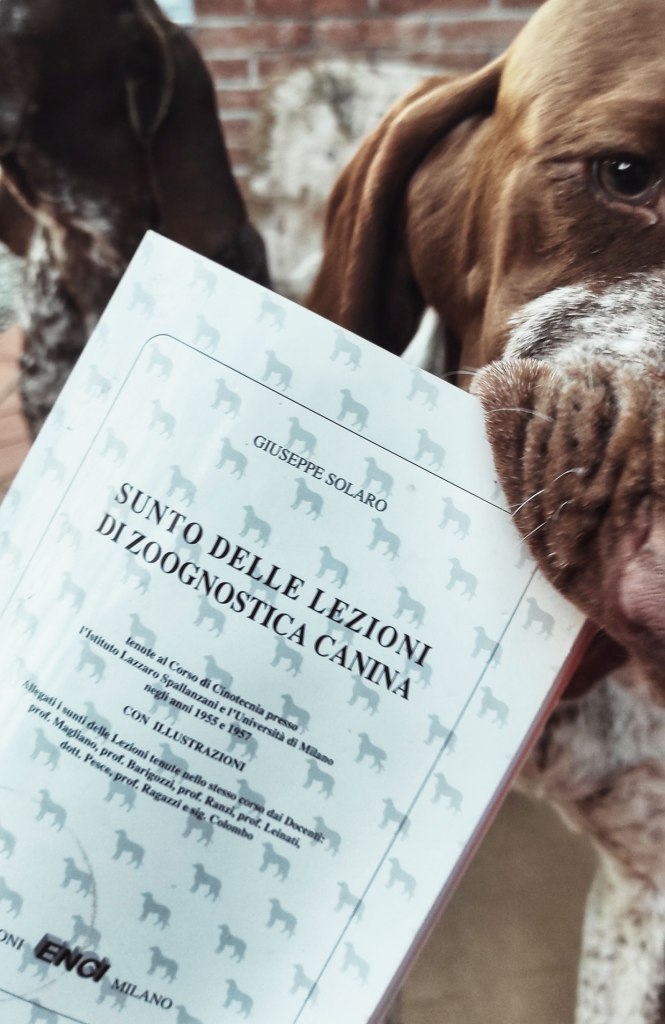 GIUSEPPE SOLARO
SUNTO DELLE LEZIONI
DI ZOOGNOSTICA CANINA
tenute al Corso di Cinotecnia presso
l'Istituto Lazzaro Spallanzani e l'Università di Milano
negli anni 1955 e 1957
CON ILLUSTRAZIONI
Allegati i sunti delle Lezioni tenute nello stesso corso dai Docenti:
prof. Magliano, prof. Barigozzi, prof. Ranzi, prof. Leinati,
dott. Pesce, prof. Ragazzi e sig. Colombo
ONI ENCI MILANO